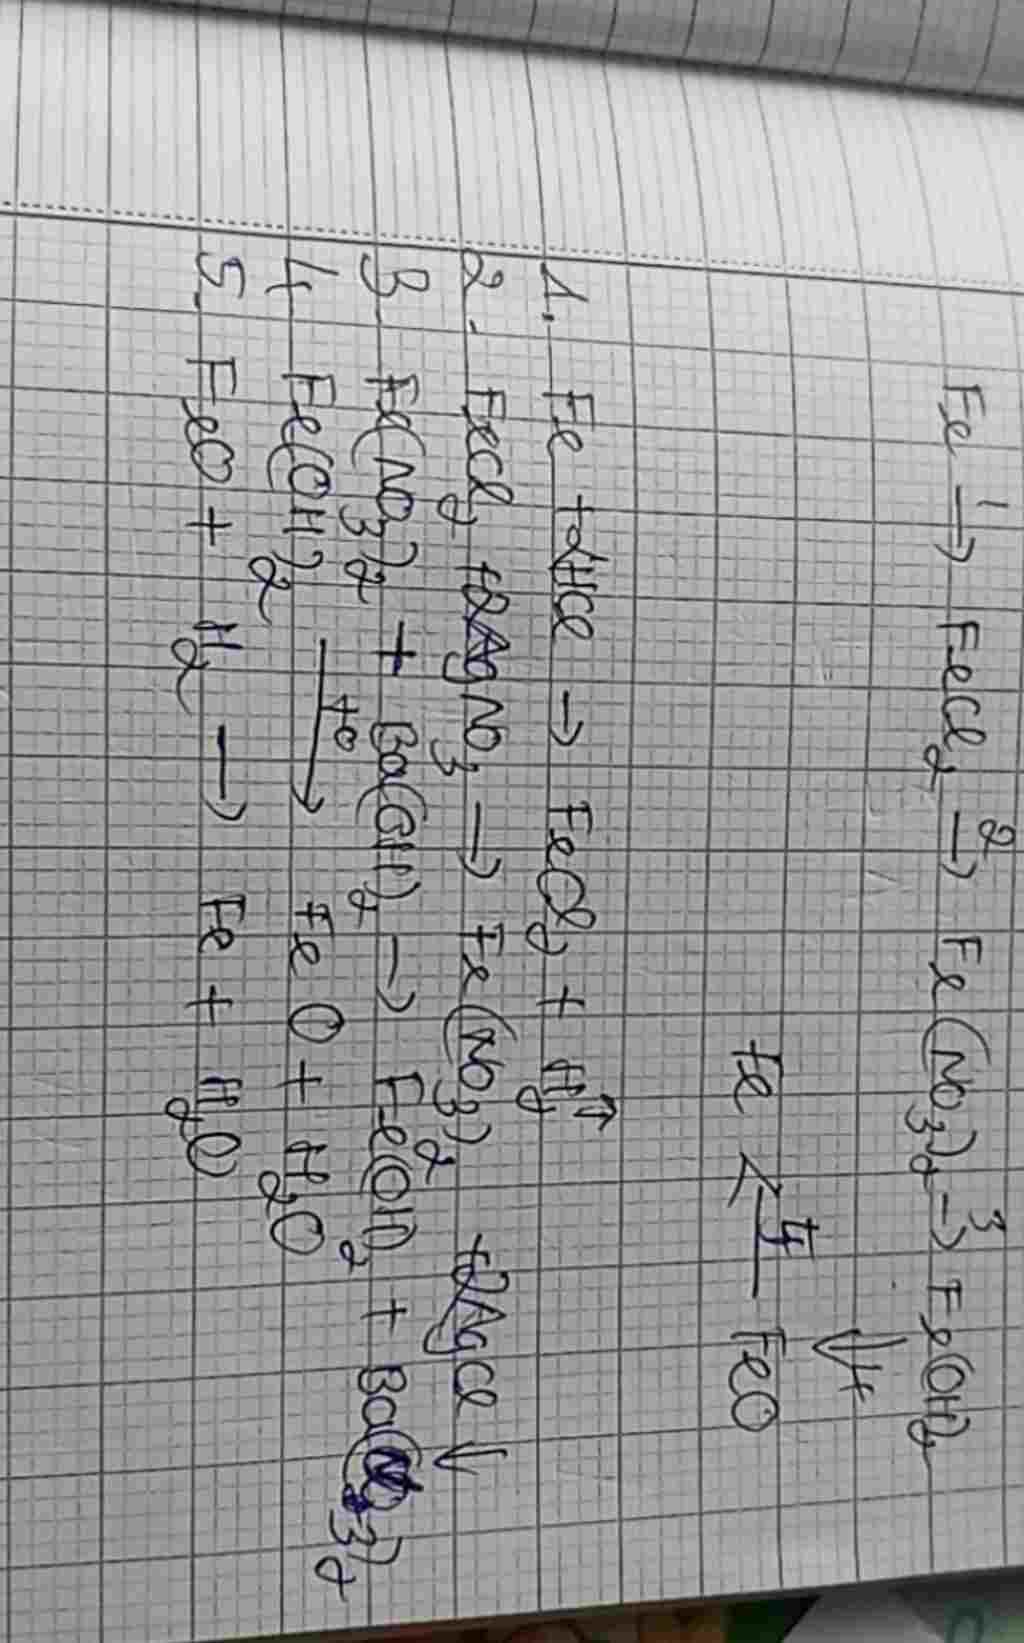 Fe →1 FeCl2 →2 Fe(NO3)2 →3 Fe(OH)2
↓4
Fe ←5 FeO
1. Fe + 2HCl → FeCl2 + H2↑
2. FeCl2 + 2AgNO3 → Fe(NO3)2 + 2AgCl↓
3. Fe(NO3)2 + Ba(OH)2 → Fe(OH)2 + Ba(NO3)2
4. Fe(OH)2 →to FeO + H2O
5. FeO + H2 → Fe + H2O